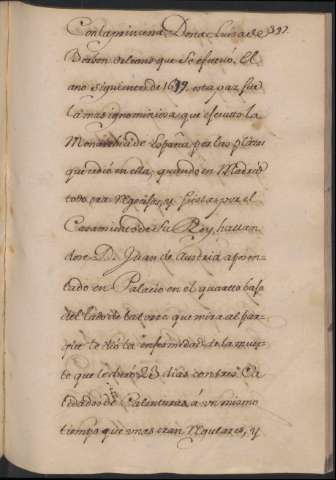 Con la princesa Dona Luisa de 397.
Borbon de leans que se efetuó. El
año siguiente de 1679. esta paz fue
la mas ignominiosa que efecttto la
Monarchia de España por las plazas
que cedió en ella, quando en Madrid
todo era regocijos, y fiestas por el
Casamiento de su Rey, hallan
dose D. Juan de Austria aposen
tado en Palacio en el quartto bajo
del lado de la torre que mira al par
que le dió la enfermedad de la muer
te que le duró 23 dias con tres Ca
lidades de Calenturas á vn mismo
tiempo que vnas eran regulares, y